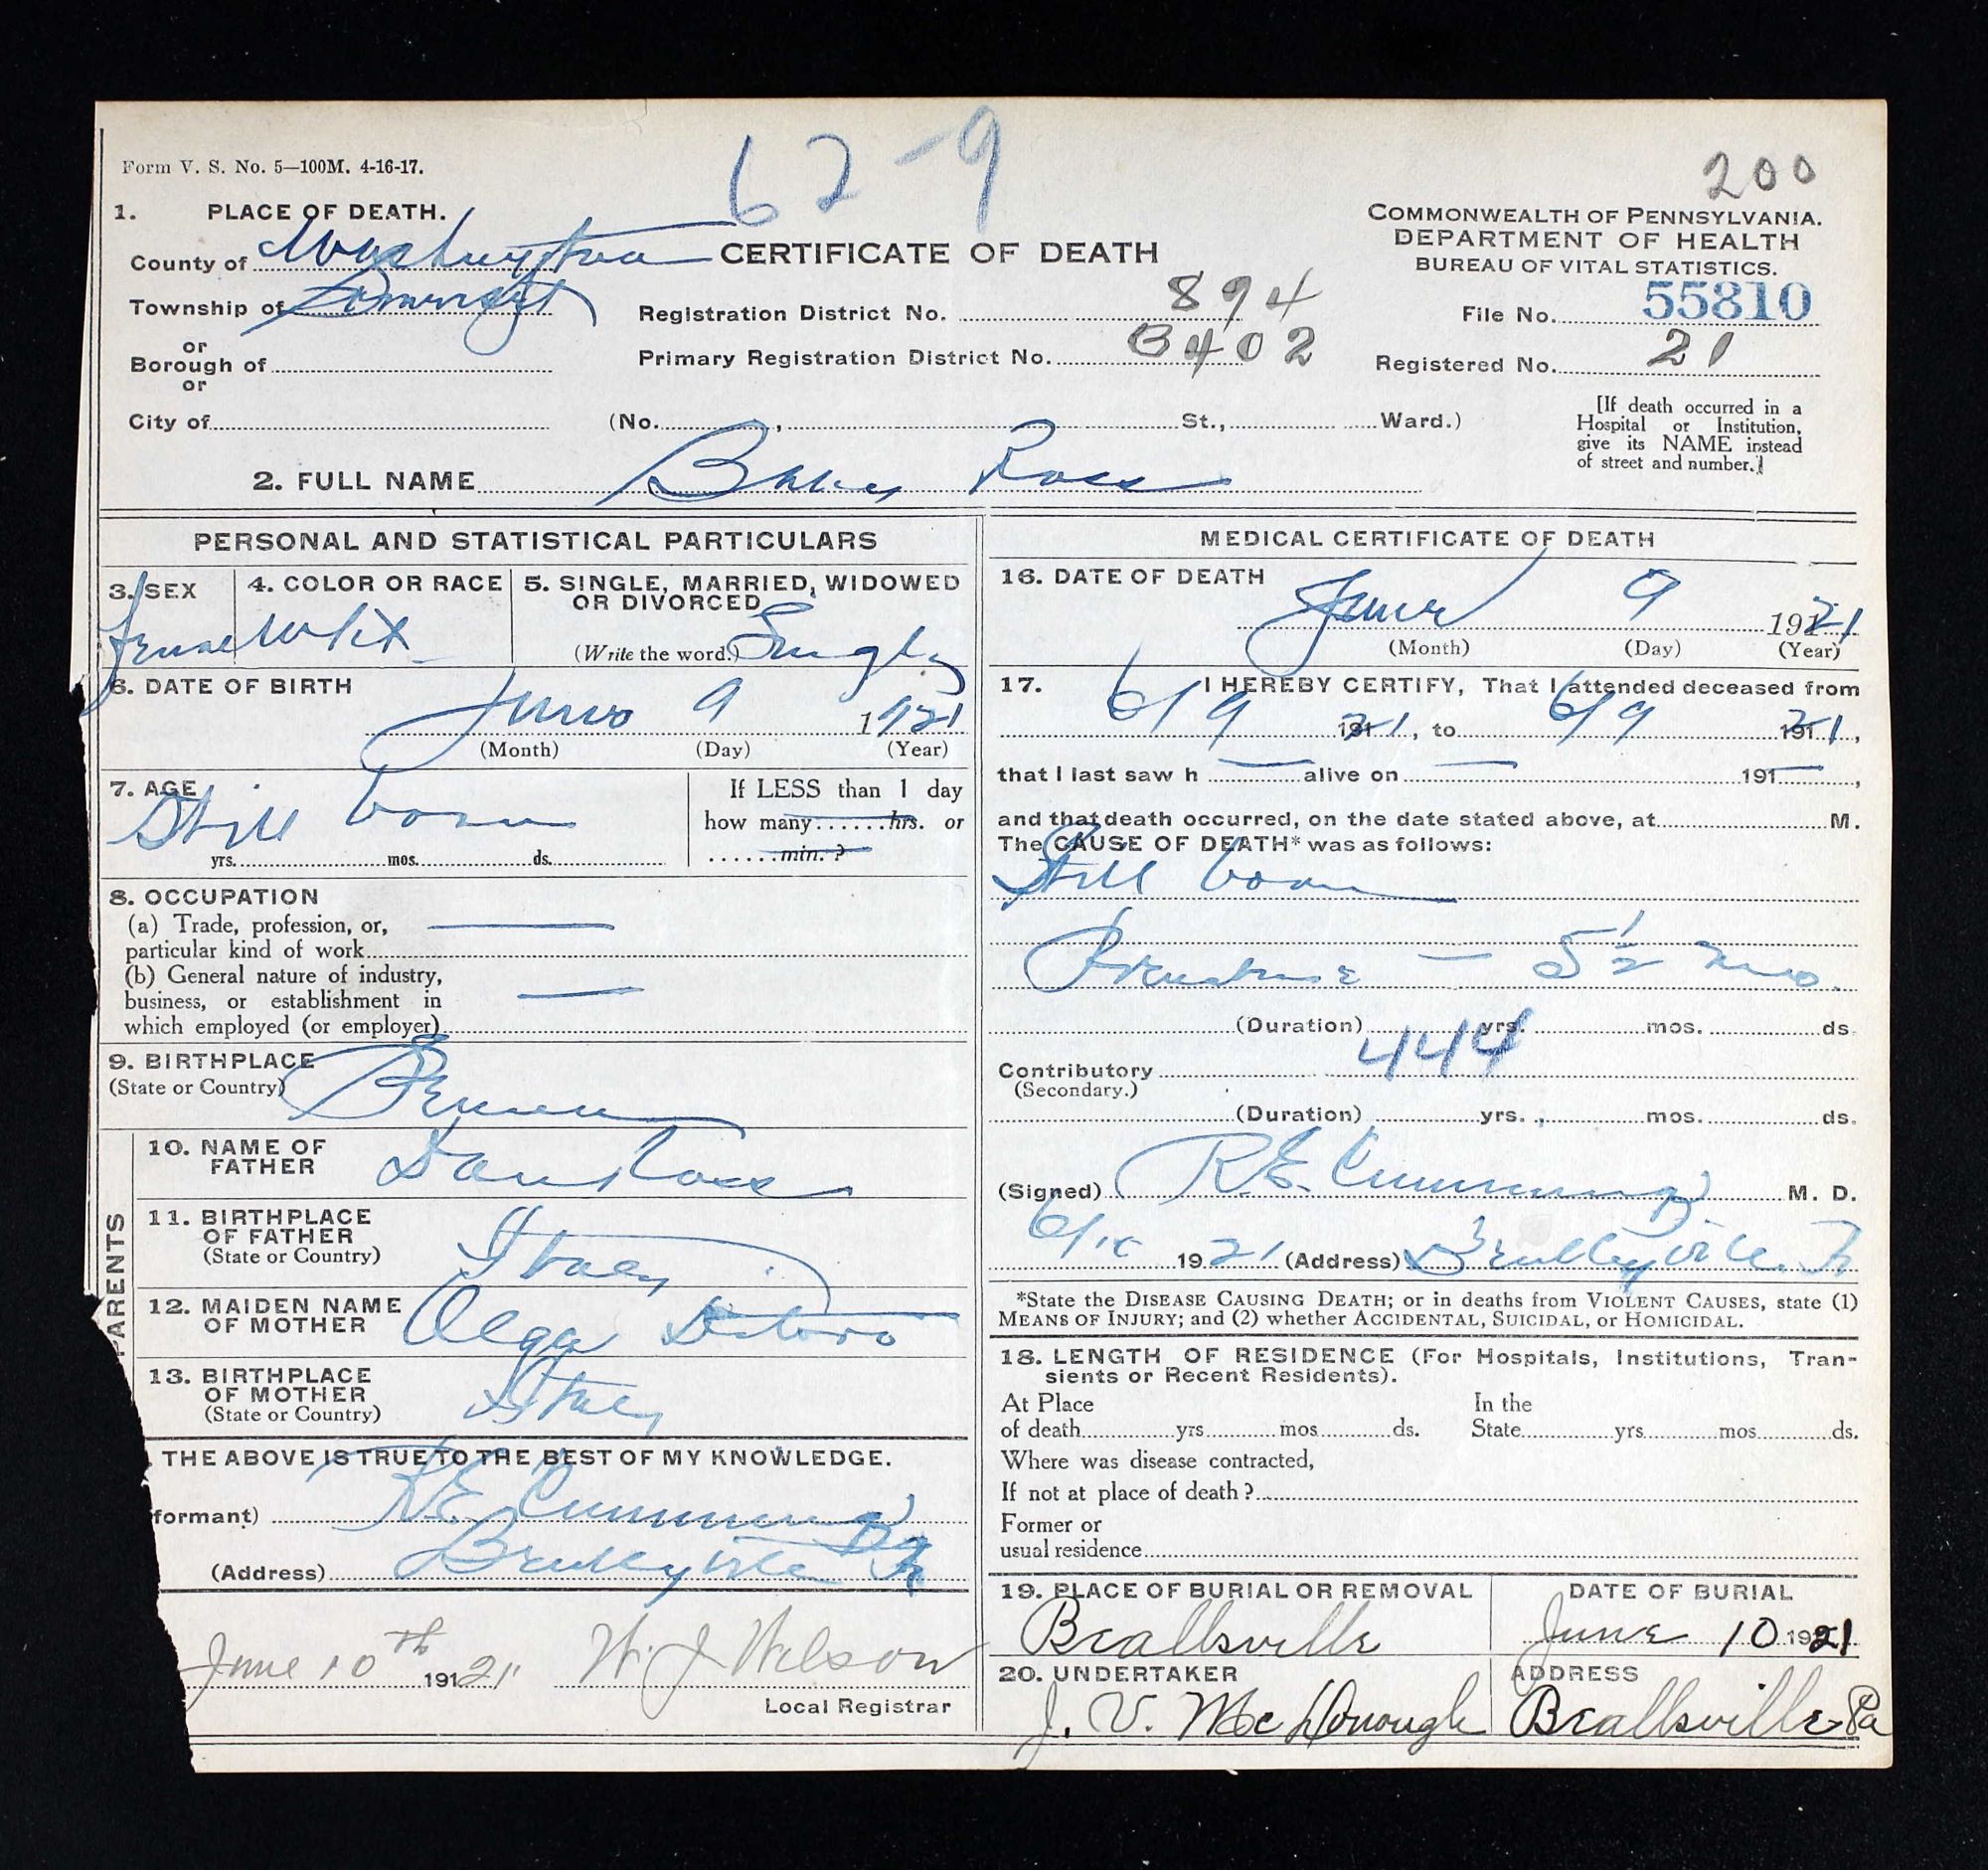 62-9
Form V. S. No. 5—100M. 4-16-17.
200
1. PLACE OF DEATH.
County of Washington
Township of Somerset
or
Borough of
or
City of
CERTIFICATE OF DEATH
Registration District No. 894
Primary Registration District No. 6402
(No. , St., Ward.)
COMMONWEALTH OF PENNSYLVANIA.
DEPARTMENT OF HEALTH
BUREAU OF VITAL STATISTICS.
File No. 55810
Registered No. 21
[If death occurred in a
Hospital or Institution,
give its NAME instead
of street and number.]
2. FULL NAME Baby Ross
PERSONAL AND STATISTICAL PARTICULARS
3. SEX
Female
4. COLOR OR RACE
White
5. SINGLE, MARRIED, WIDOWED
OR DIVORCED
(Write the word.) Single
6. DATE OF BIRTH
June 9 1921
(Month) (Day) (Year)
7. AGE
Still born
yrs. mos. ds.
If LESS than 1 day
how many......hrs. or
......min. ?
8. OCCUPATION
(a) Trade, profession, or,
particular kind of work
(b) General nature of industry,
business, or establishment in
which employed (or employer)
9. BIRTHPLACE
(State or Country) Penna
PARENTS
10. NAME OF
FATHER Dan Ross
11. BIRTHPLACE
OF FATHER
(State or Country) Italy
12. MAIDEN NAME
OF MOTHER Olga
13. BIRTHPLACE
OF MOTHER
(State or Country) Italy
THE ABOVE IS TRUE TO THE BEST OF MY KNOWLEDGE.
formant) R.E. Cumming
(Address) Pa
June 10th 1921 W. J. Wilson
Local Registrar
MEDICAL CERTIFICATE OF DEATH
16. DATE OF DEATH
June 9 1921
(Month) (Day) (Year)
17. I HEREBY CERTIFY, That I attended deceased from
6/9 1921, to 6/9 1921,
that I last saw h — alive on — 191—,
and that death occurred, on the date stated above, at M.
The CAUSE OF DEATH* was as follows:
Still born
Premature — 5 1/2 mos.
(Duration) yrs. mos. ds.
444
Contributory
(Secondary.)
(Duration) yrs. , mos. ds.
(Signed) R.E. Cumming M. D.
6/10 1921 (Address) Pa
*State the DISEASE CAUSING DEATH; or in deaths from VIOLENT CAUSES, state (1)
MEANS OF INJURY; and (2) whether ACCIDENTAL, SUICIDAL, or HOMICIDAL.
18. LENGTH OF RESIDENCE (For Hospitals, Institutions, Tran-
sients or Recent Residents).
At Place In the
of death yrs mos ds. State yrs mos ds.
Where was disease contracted,
If not at place of death?
Former or
usual residence
19. PLACE OF BURIAL OR REMOVAL
Beallsville
DATE OF BURIAL
June 10 1921
20. UNDERTAKER
J. V. McDonough
ADDRESS
Beallsville Pa